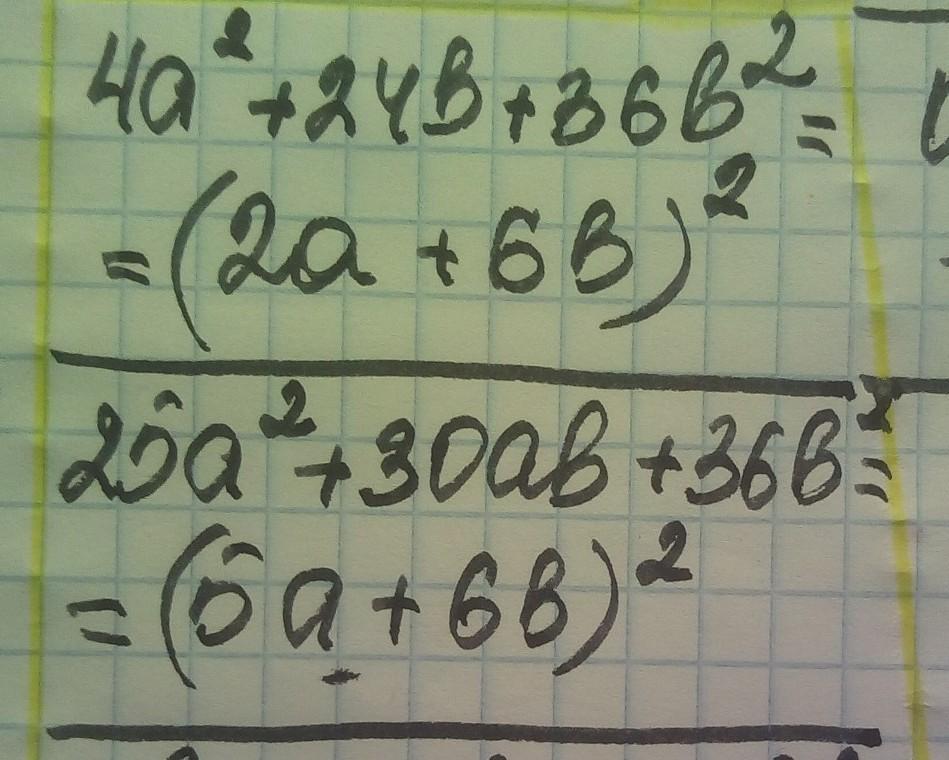 4a² + 24в + 36в² =
= (2a + 6в)²
25a² + 30aв + 36в² =
= (5a + 6в)²